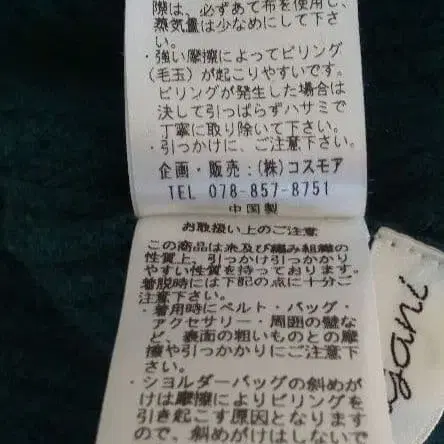 際は、必ずあて布を使用し、
蒸気量は少なめにして下さ
い。
・強い摩擦によってピリング
(毛玉)が起こりやすいです。
ピリングが発生した場合は
決して引っぱらずハサミで
丁寧に取り除いて下さい。
・引っかけに、ご注意下さい。
企画・販売:(株)コスモア
TEL 078-857-8751
中国製
お取扱い上のご注意
この商品は糸及び編み組織の
性質上、引っかけ引っかかり
やすい性質を持っております。
着脱時には下記の点に十分ご
注意下さい。
・着用時にベルト・バッグ・
アクセサリー・周囲の壁な
ど、表面の粗いものとの摩
擦や引っかかりにご注意下
さい。
・ショルダーバッグの斜めが
けは摩擦によりピリングを
引き起こす原因となります
ので、斜めがけはしないで